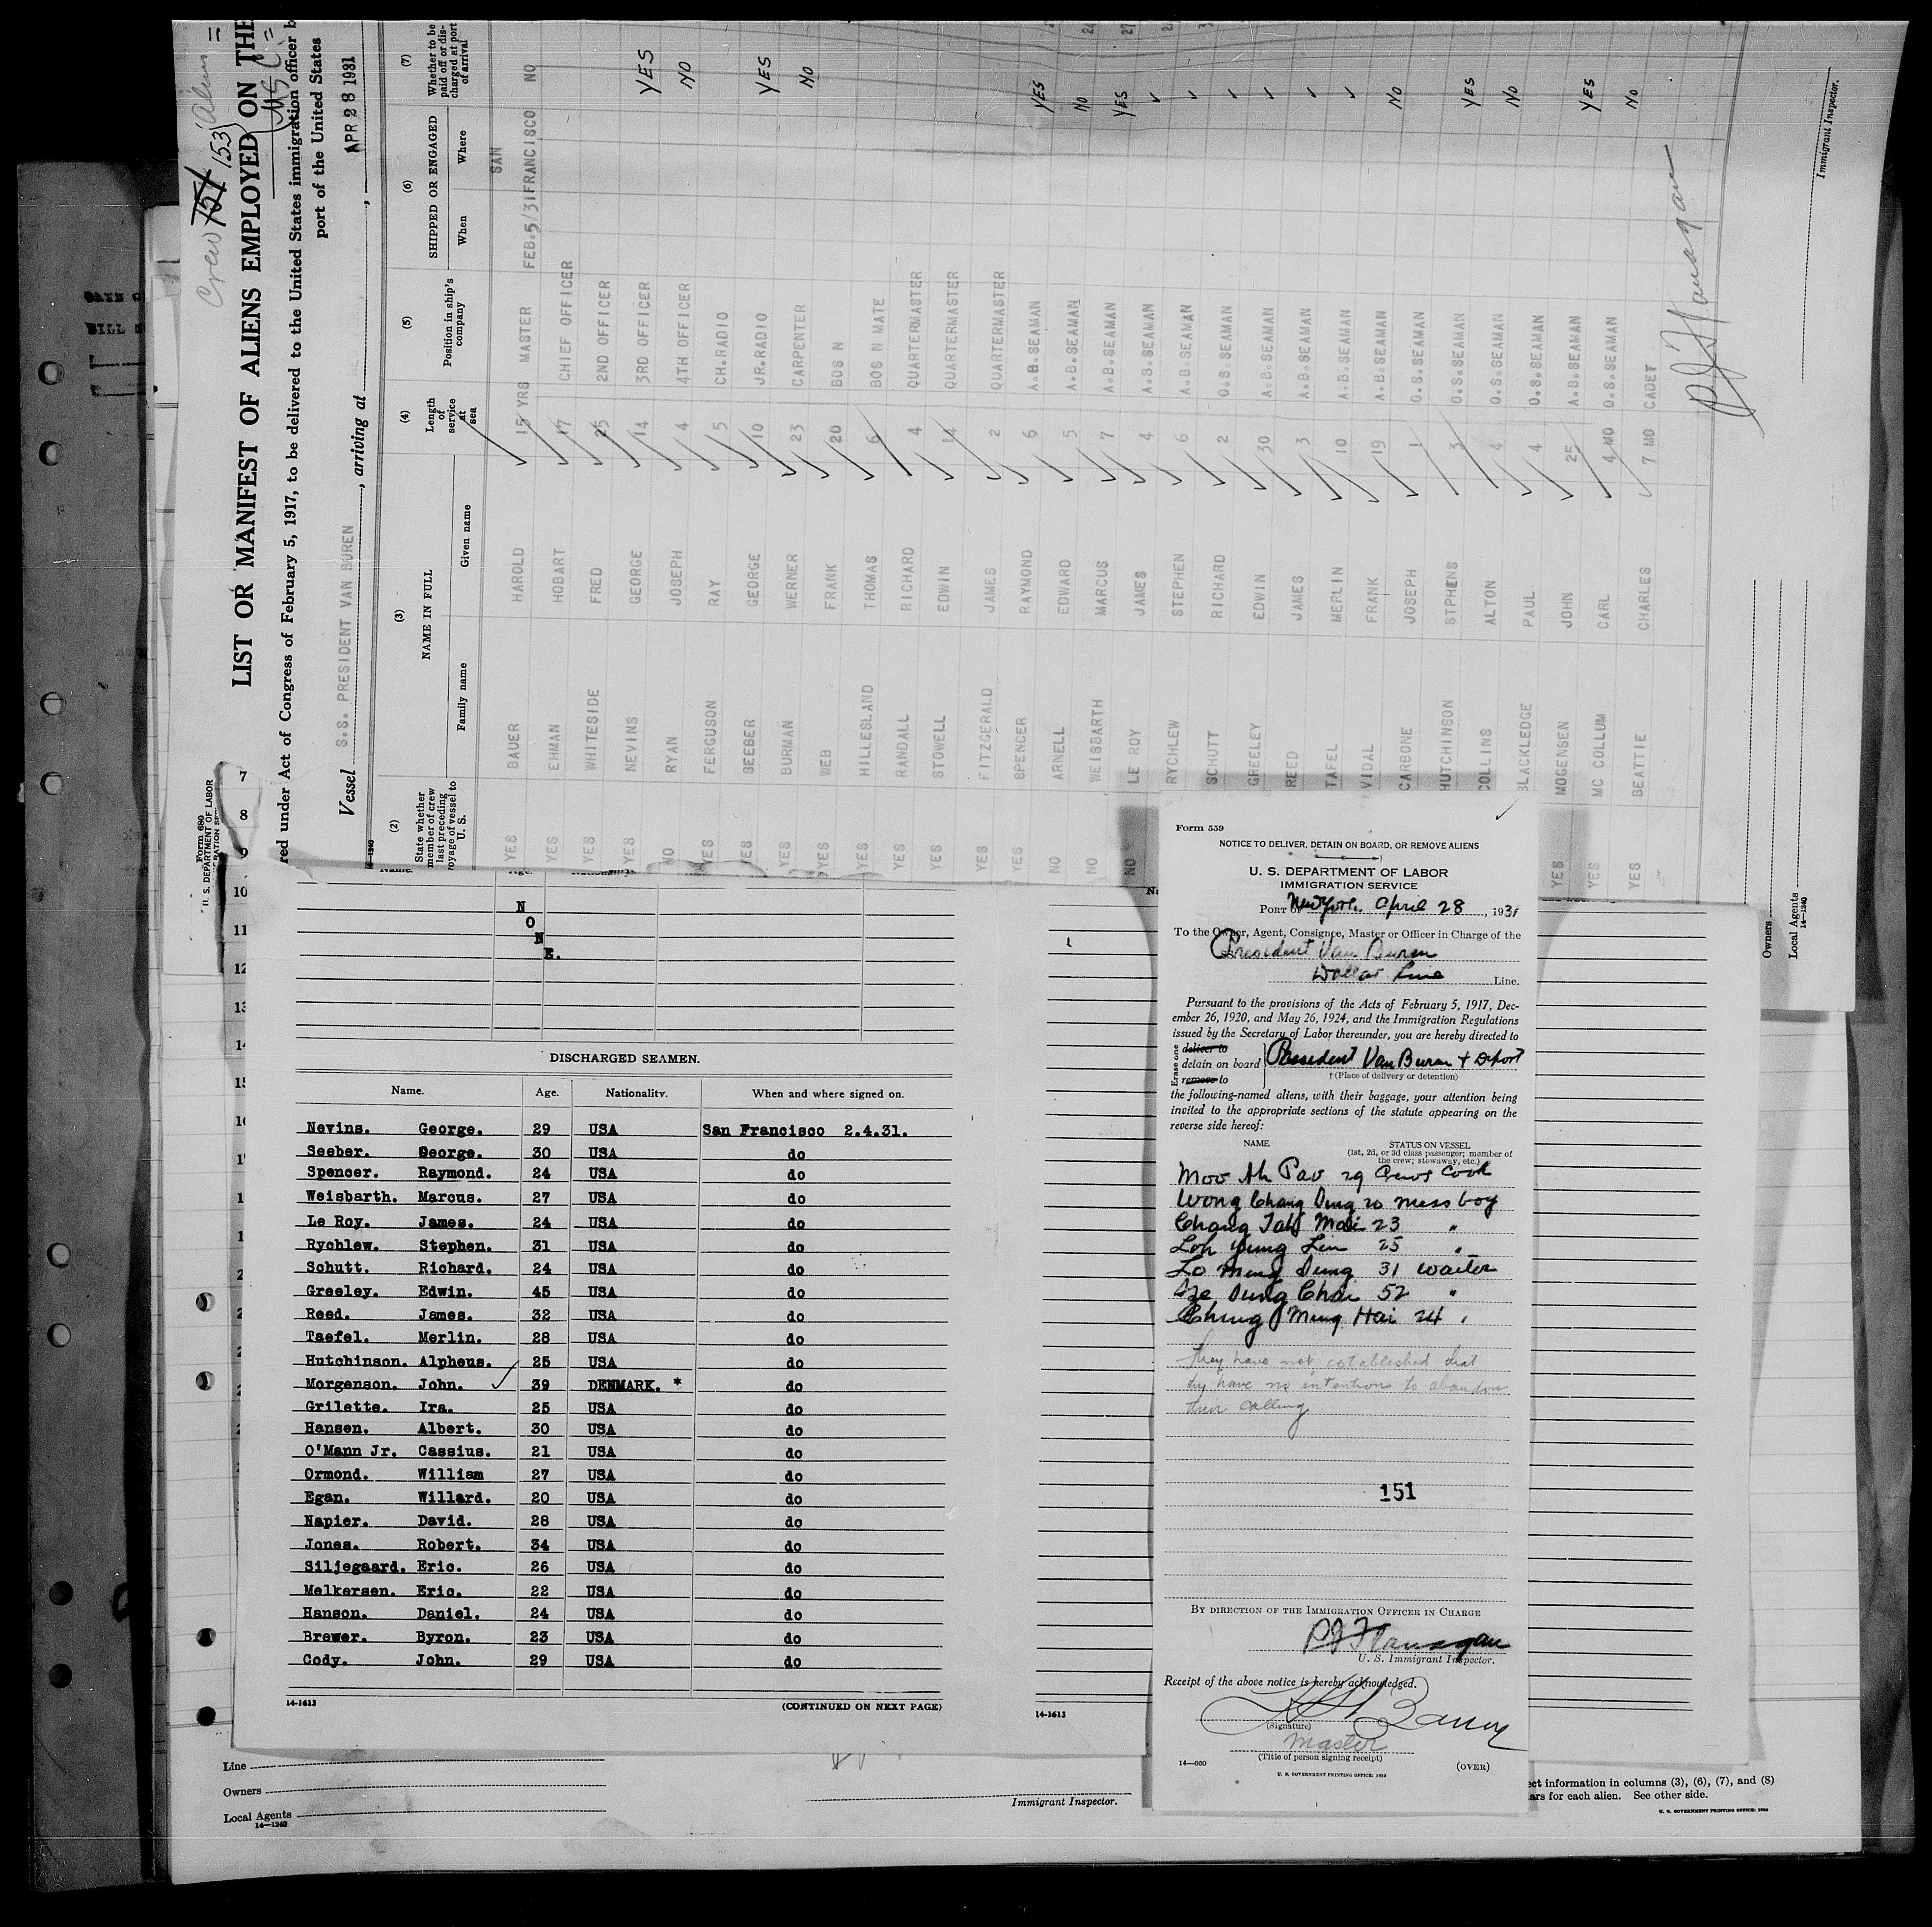 Crew 151 153 Aliens =
US C =
LIST OR MANIFEST OF ALIENS EMPLOYED ON THE
red under Act of Congress of February 5, 1917, to be delivered to the United States immigration officer
port of the United States
Vessel S.S. PRESIDENT VAN BUREN, arriving at APR 28 1931
(2) (3) (4) (5) (6) (7)
State whether member of crew last preceding voyage of vessel to U. S.
NAME IN FULL
Family name Given name
Length of service at sea
Position in ship's company
SHIPPED OR ENGAGED
When Where
Whether to be paid off or discharged at port of arrival
YES BAUER HAROLD 15 YRS MASTER FEB.5/31 SAN FRANCISCO NO
YES EHMAN HOBART 17 CHIEF OFFICER
YES WHITESIDE FRED 25 2ND OFFICER
YES NEVINS GEORGE 14 3RD OFFICER YES
NO RYAN JOSEPH 4 4TH OFFICER NO
YES FERGUSON RAY 5 CH.RADIO
YES SEEBER GEORGE 10 JR.RADIO YES
YES BURMAN WERNER 23 CARPENTER NO
YES WEB FRANK 20 BOS N
YES HILLESLAND THOMAS 6 BOS N MATE
YES RANDALL RICHARD 4 QUARTERMASTER
YES STOWELL EDWIN 14 QUARTERMASTER
YES FITZGERALD JAMES 2 QUARTERMASTER
YES SPENCER RAYMOND 6 A.B.SEAMAN YES
NO ARNELL EDWARD 5 A.B.SEAMAN NO
NO WEISBARTH MARCUS 7 A.B.SEAMAN YES
NO LE ROY JAMES 4 A.B.SEAMAN ✓
RYCHLEW STEPHEN 6 A.B.SEAMAN ✓
SCHUTT RICHARD 2 O.S.SEAMAN ✓
GREELEY EDWIN 30 A.B.SEAMAN ✓
REED JAMES 3 A.B.SEAMAN ✓
TAFEL MERLIN 10 A.B.SEAMAN ✓
VIDAL FRANK 19 A.B.SEAMAN NO
CARBONE JOSEPH 1 O.S.SEAMAN
HUTCHINSON STPHENS 3 O.S.SEAMAN YES
COLLINS ALTON 4 O.S.SEAMAN NO
BLACKLEDGE PAUL 4 O.S.SEAMAN
YES MOGENSEN JOHN 25 A.B.SEAMAN YES
YES MC COLLUM CARL 4 MO O.S.SEAMAN NO
YES BEATTIE CHARLES 7 MO CADET
PJ Flanagan
Immigrant Inspector.
Owners
Local Agents
14—1240
Form 680
U. S. DEPARTMENT OF LABOR
7
8
9
10
11
12
13
14
15
N
O
N
E.
DISCHARGED SEAMEN.
Name. Age. Nationality. When and where signed on.
Nevins. George. 29 USA San Francisco 2.4.31.
Seeber. George. 30 USA do
Spencer. Raymond. 24 USA do
Weisbarth. Marcus. 27 USA do
Le Roy. James. 24 USA do
Rychlew. Stephen. 31 USA do
Schutt. Richard. 24 USA do
Greeley. Edwin. 45 USA do
Reed. James. 32 USA do
Taefel. Merlin. 28 USA do
Hutchinson. Alpheus. 25 USA do
Morgenson. John. ✓ 39 DENMARK. * do
Grilette. Ira. 25 USA do
Hansen. Albert. 30 USA do
O'Mann Jr. Cassius. 21 USA do
Ormond. William 27 USA do
Egan. Willard. 20 USA do
Napier. David. 28 USA do
Jones. Robert. 34 USA do
Siljegaard. Eric. 26 USA do
Melkersen. Eric. 22 USA do
Hanson. Daniel. 24 USA do
Brewer. Byron. 23 USA do
Cody. John. 29 USA do
14-1613 (CONTINUED ON NEXT PAGE)
14-1613
Form 559
NOTICE TO DELIVER, DETAIN ON BOARD, OR REMOVE ALIENS
U. S. DEPARTMENT OF LABOR
IMMIGRATION SERVICE
PORT OF New York, April 28, 1931
To the Owner, Agent, Consignee, Master or Officer in Charge of the
President Van Buren
Dollar Line Line.
Pursuant to the provisions of the Acts of February 5, 1917, Dec-
ember 26, 1920, and May 26, 1924, and the Immigration Regulations
issued by the Secretary of Labor thereunder, you are hereby directed to
Erase one
deliver to
detain on board President Van Buren + Deport
remove to
† (Place of delivery or detention)
the following-named aliens, with their baggage, your attention being
invited to the appropriate sections of the statute appearing on the
reverse side hereof:
NAME STATUS ON VESSEL
(1st, 2d, or 3d class passenger; member of
the crew; stowaway, etc.)
Moo Ah Pao 29 Crews Cook
Wong Chang Dung 20 mess boy
Chang Tah Mai 23 "
Loh Yung Lin 25 "
Lo Meng Dung 31 waiter
Sze Dung Chai 52 "
Chung Ming Hai 24 "
They have not established that
they have no intention to abandon
their calling
151
BY DIRECTION OF THE IMMIGRATION OFFICER IN CHARGE
PJ Flanagan
U. S. Immigrant Inspector.
Receipt of the above notice is hereby acknowledged.
(Signature)
Master
(Title of person signing receipt)
14—600 (OVER)
U. S. GOVERNMENT PRINTING OFFICE:
Line
Owners
Local Agents
14—1240
Immigrant Inspector.
ect information in columns (3), (6), (7), and (8)
ars for each alien. See other side.
U. S. GOVERNMENT PRINTING OFFICE: